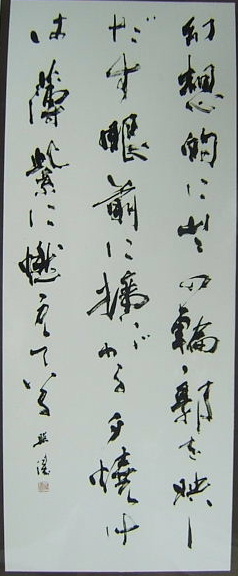 幻想的に世の輪郭を映し
だす眼前に擴がる夕焼け
は薄紫に燃えている